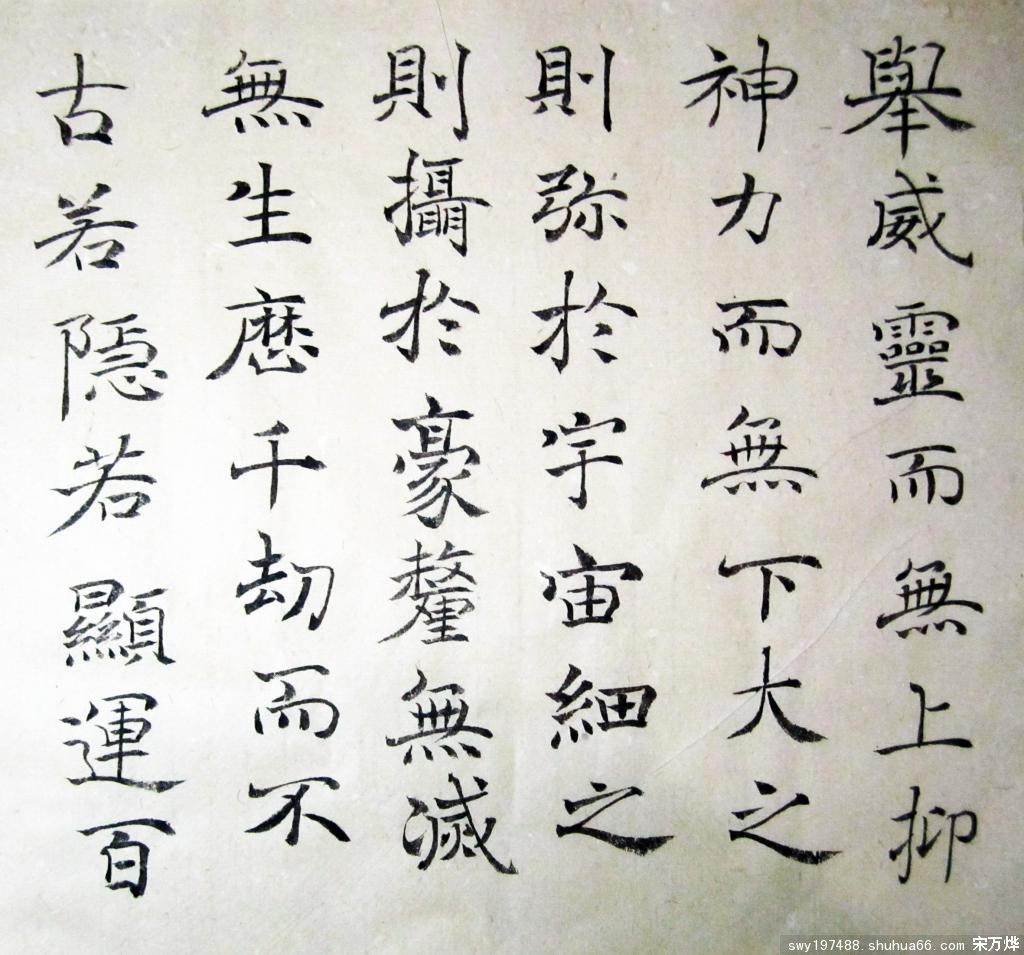 舉威靈而無上抑
神力而無下大之
則弥於宇宙細之
則攝於豪釐無滅
無生歷千劫而不
古若隱若顯運百
swy197488.shuhua66.com 宋万烨